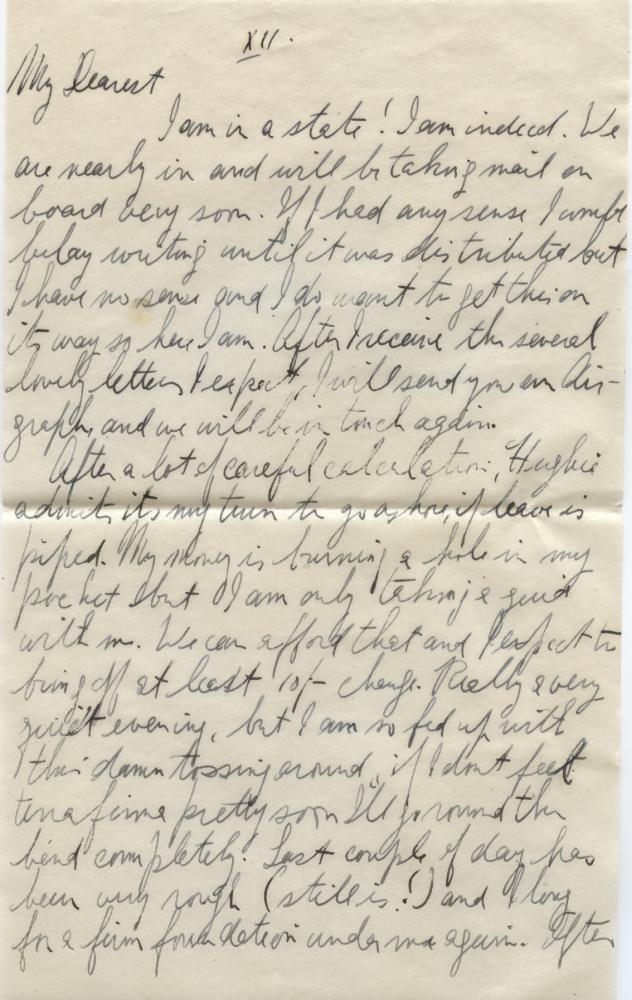 XII.
My Dearest
I am in a state! I am indeed. We
are nearly in and will be taking mail on
board very soon. If I had any sense I would
belay writing until it was distributed but
I have no sense and I do want to get this on
its way so here I am. After I receive the several
lovely letters I expect, I will send you an Air-
graph, and we will be in touch again.
After a lot of careful calculation, Hughie
admits its my turn to go ashore, if leave is
piped. My money is burning a hole in my
pocket but I am only taking a quid
with me. We can afford that and I expect to
bring off at least 10/- change. Really a very
quiet evening, but I am so fed up with
this damn tossing around, if I dont feel
terra firma pretty soon I'll go round the
bend completely. Last couple of days has
been very rough (still is!) and I long
for a firm foundation under me again. After